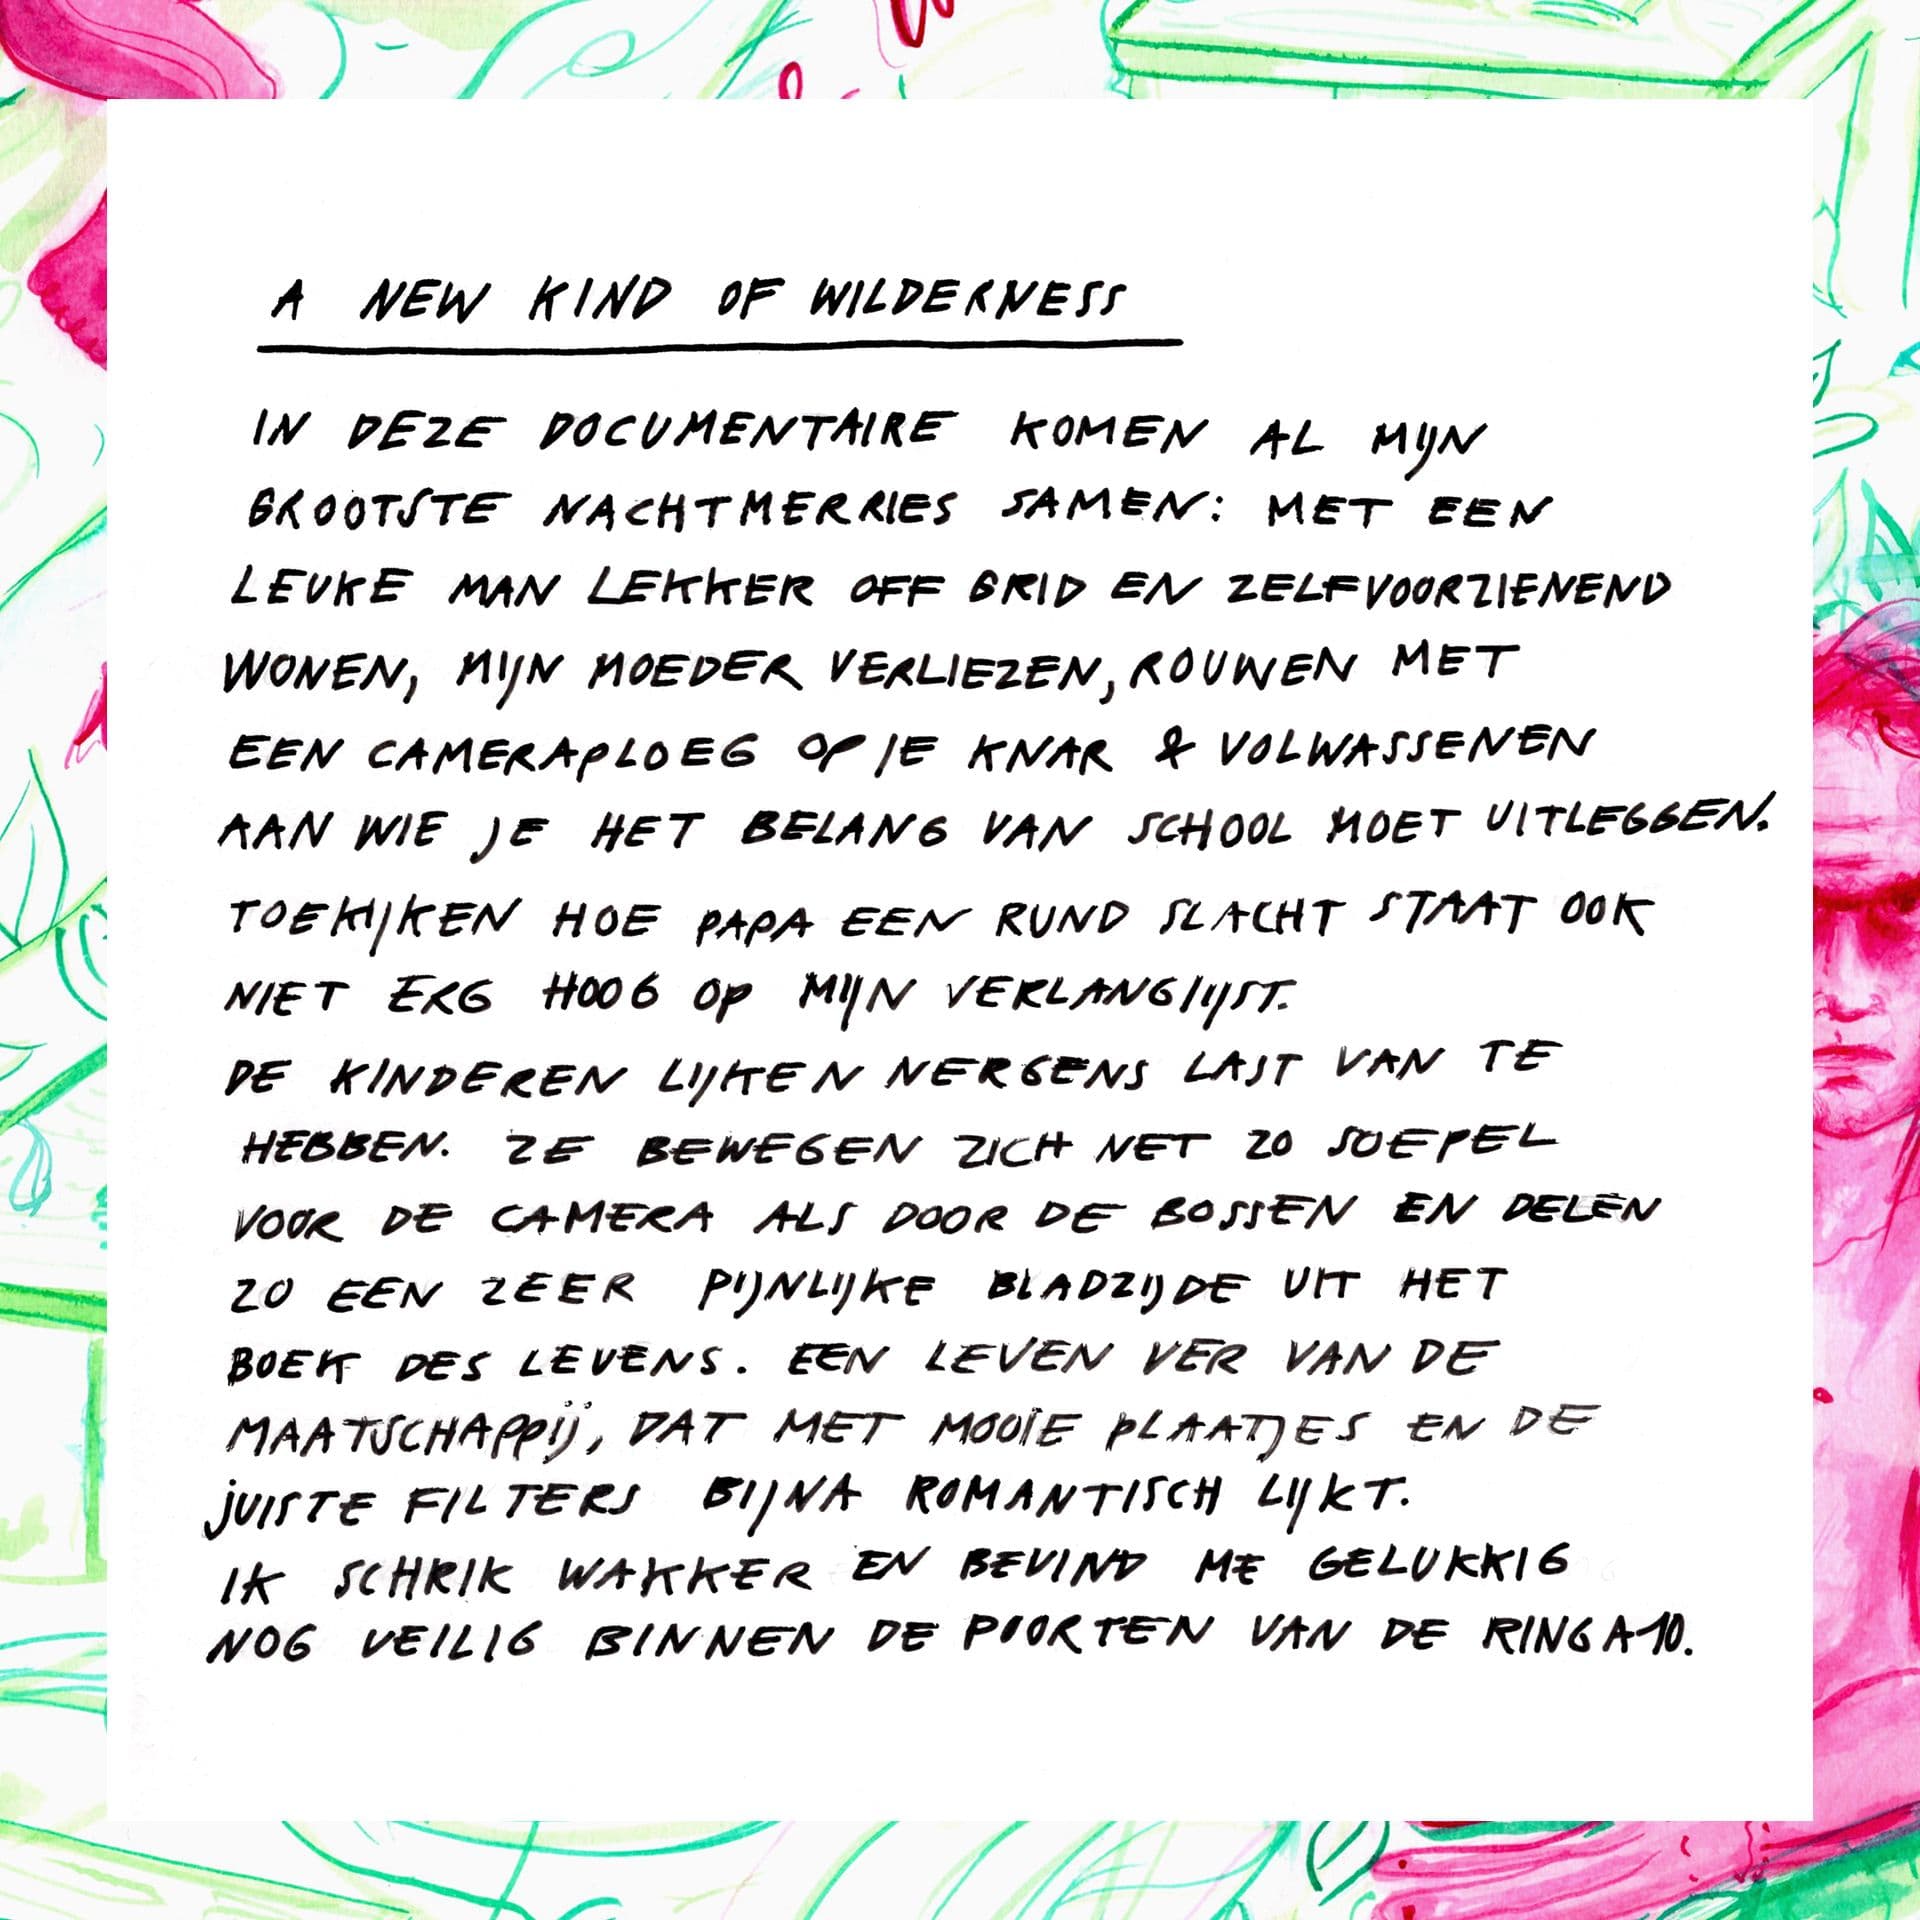 A NEW KIND OF WILDERNESS
IN DEZE DOCUMENTAIRE KOMEN AL MIJN
GROOTSTE NACHTMERRIES SAMEN: MET EEN
LEUKE MAN LEKKER OFF GRID EN ZELFVOORZIENEND
WONEN, MIJN MOEDER VERLIEZEN, ROUWEN MET
EEN CAMERAPLOEG OP JE KNAR & VOLWASSENEN
AAN WIE JE HET BELANG VAN SCHOOL MOET UITLEGGEN.
TOEKIJKEN HOE PAPA EEN RUND SLACHT STAAT OOK
NIET ERG HOOG OP MIJN VERLANGLIJST.
DE KINDEREN LIJKEN NERGENS LAST VAN TE
HEBBEN. ZE BEWEGEN ZICH NET ZO SOEPEL
VOOR DE CAMERA ALS DOOR DE BOSSEN EN DELEN
ZO EEN ZEER PIJNLIJKE BLADZIJDE UIT HET
BOEK DES LEVENS. EEN LEVEN VER VAN DE
MAATSCHAPPIJ, DAT MET MOOIE PLAATJES EN DE
JUISTE FILTERS BIJNA ROMANTISCH LIJKT.
IK SCHRIK WAKKER EN BEVIND ME GELUKKIG
NOG VEILIG BINNEN DE POORTEN VAN DE RING A10.